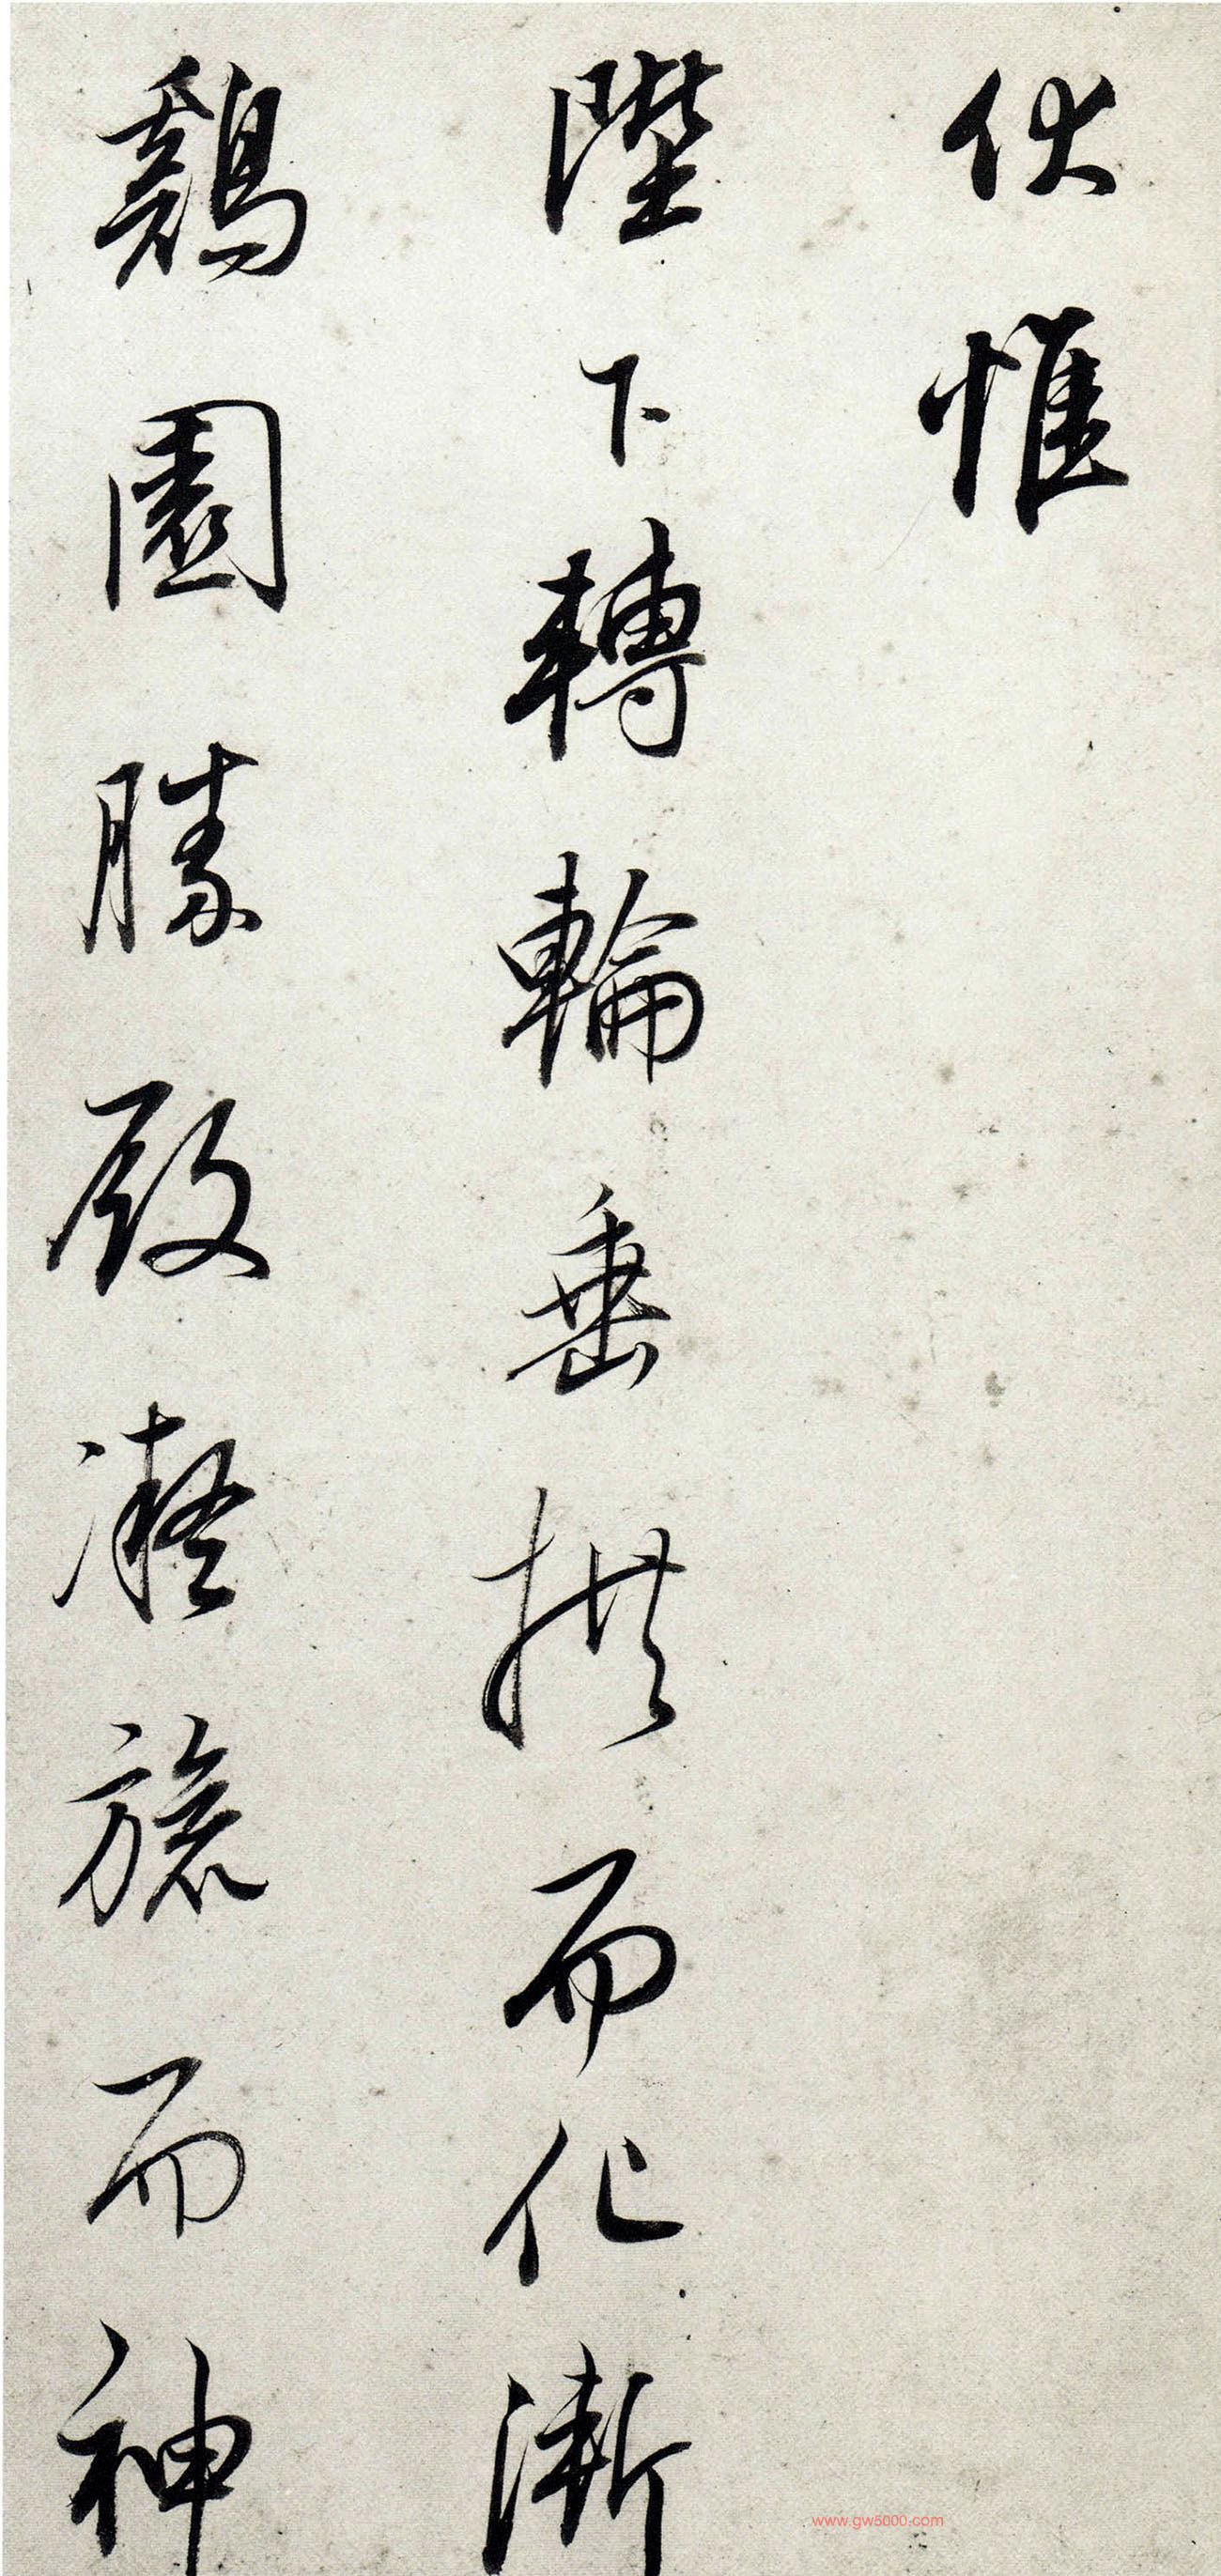 伏惟
陛下轉輪垂拱而化漸
鷄園勝殿凝旒而神
www.gw5000.com